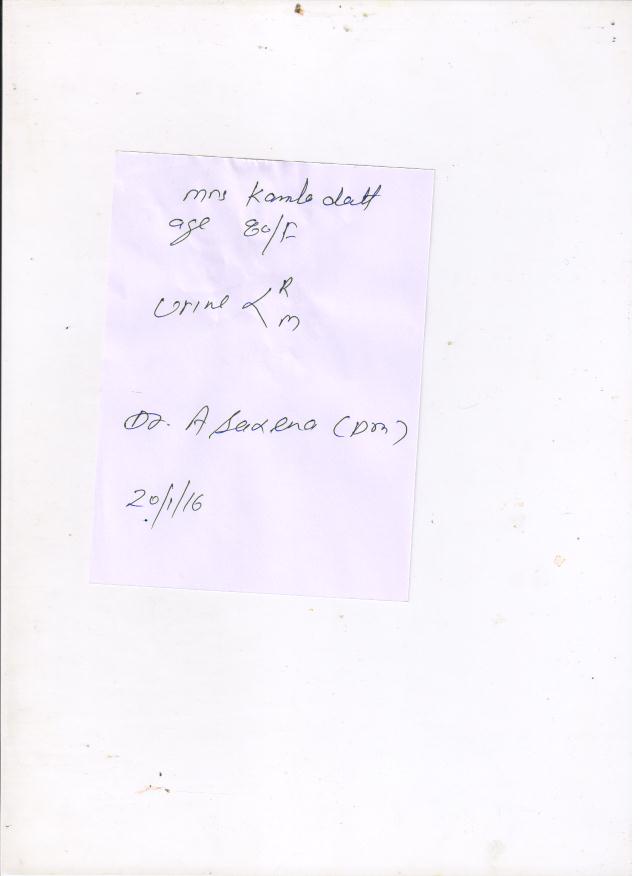 mrs Kamla datt
age 80/F
Urine < R
m
Dr. A Saxena (Dm)
20/1/16